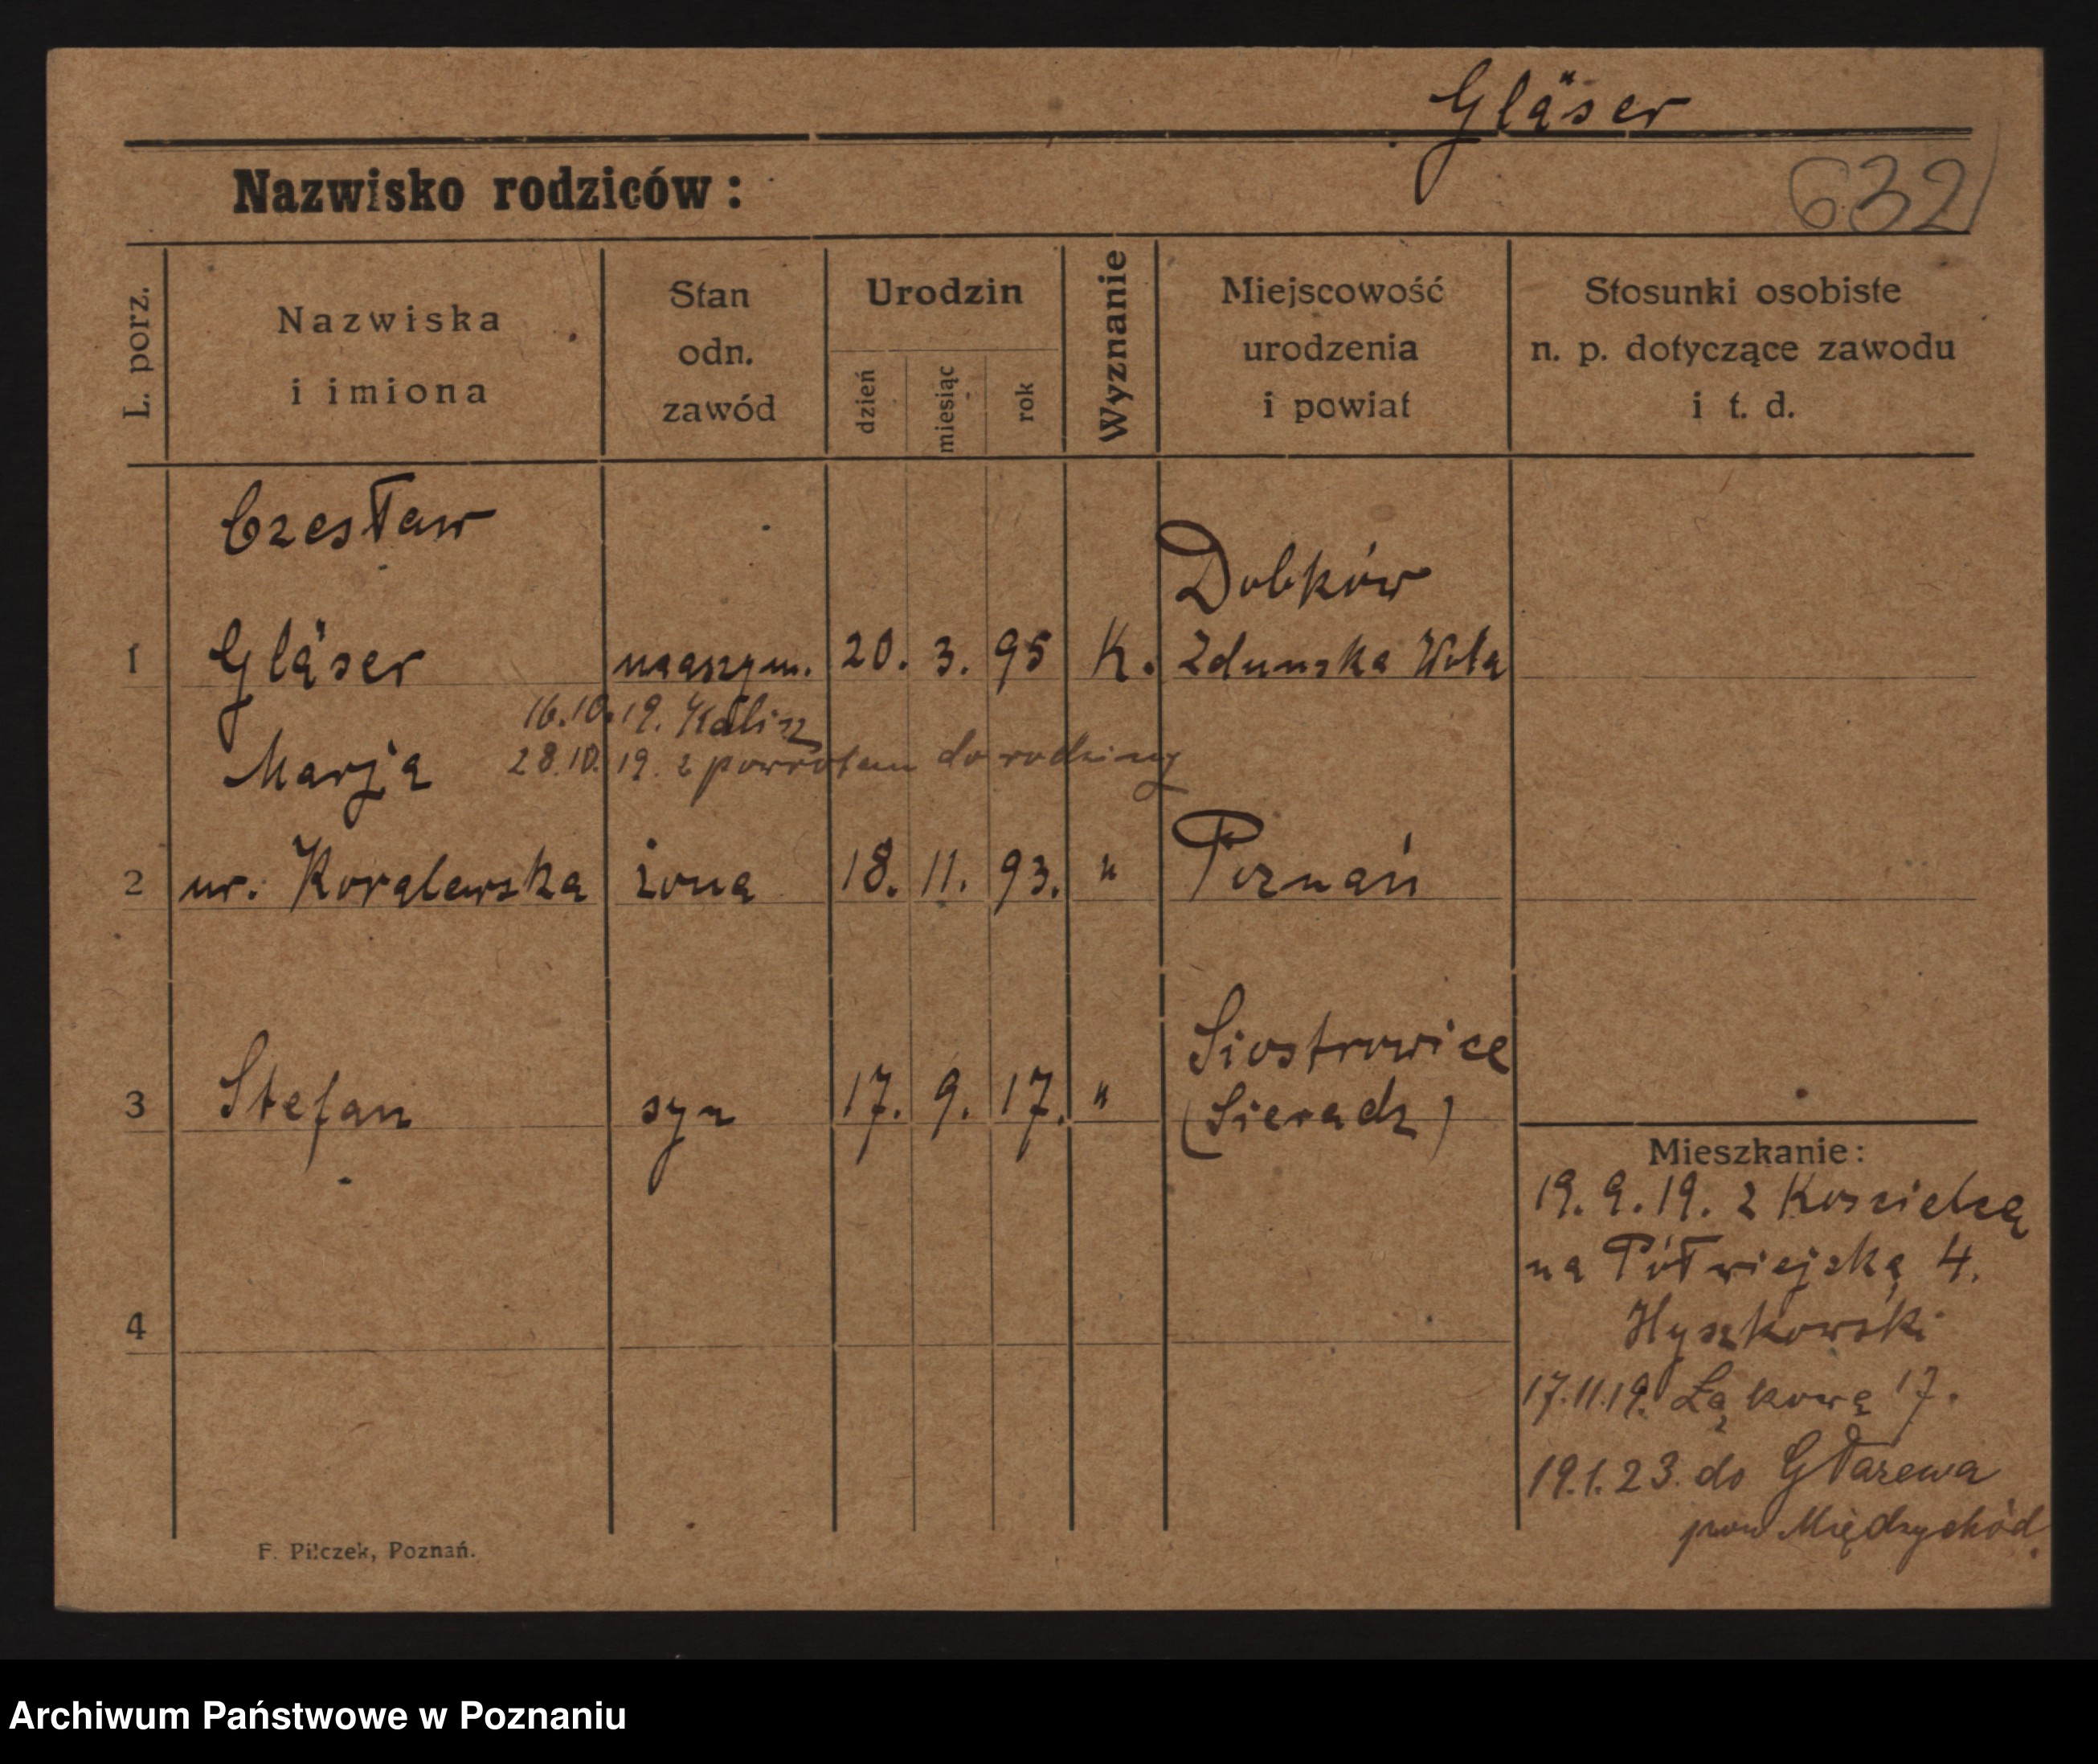 Gläser
Nazwisko rodziców:
632
L. porz.
Nazwiska
i imiona
Stan
odn.
zawód
Urodzin
dzień
miesiąc
rok
Wyznanie
Miejscowość
urodzenia
i powiat
Stosunki osobiste
n. p. dotyczące zawodu
i t. d.
Czesław
Dobków
1 Gläser maszyn. 20. 3. 95 K. Zdunska Wola
16.10.19. Kalisz
Marja 28.10.19. z powrotem do rodziny
2 ur. Koralewska żona 18. 11. 93. " Poznań
Siostrowice
3 Stefan syn 17. 9. 17. " (Sieradz)
4
Mieszkanie:
19.9.19. z
na Półwiejską 4.
Hyszkowski
17.11.19. Łąkową 17.
19.1.23. do Głazewa
pow Międzychód.
F. Pilczek, Poznań.
Archiwum Państwowe w Poznaniu